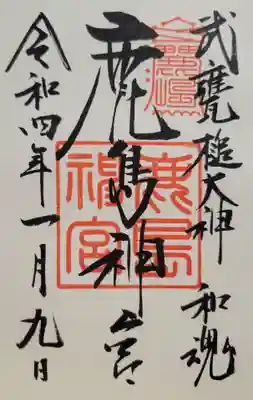 武甕槌大神 和魂
鹿島神宮
鹿島
神宮
令和四年一月九日